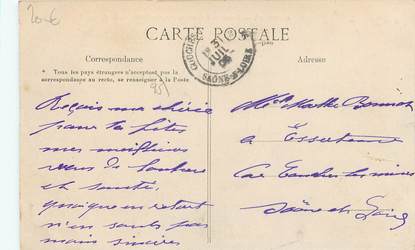 20€
CARTE POSTALE
Correspondance
Adresse
* Tous les pays étrangers n'acceptent pas la
correspondance au recto, se renseigner à la Poste
SAÔNE-&-LOIRE
3
JUIL
Reçois ma chérie
pour ta fête
mes meilleurs
vœux de bonheur
et santé
quoique en retard
n'en sont pas
moins sincères
Melle Marthe
a Essertenne
par les mines
Saône et Loire